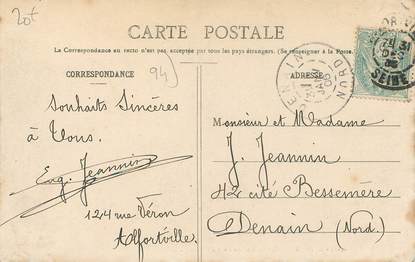 20+
CARTE POSTALE
La Correspondance au recto n'est pas acceptée par tous les pays étrangers. (Se renseigner à la Poste.)
CORRESPONDANCE
94)
ADRESSE
SEINE
Souhaits Sincères
à Vous.
Eug. Jeannin
124 rue Véron
Alfortville.
Monsieur et Madame
J. Jeannin
42 cité Bessemère
Denain (Nord.)